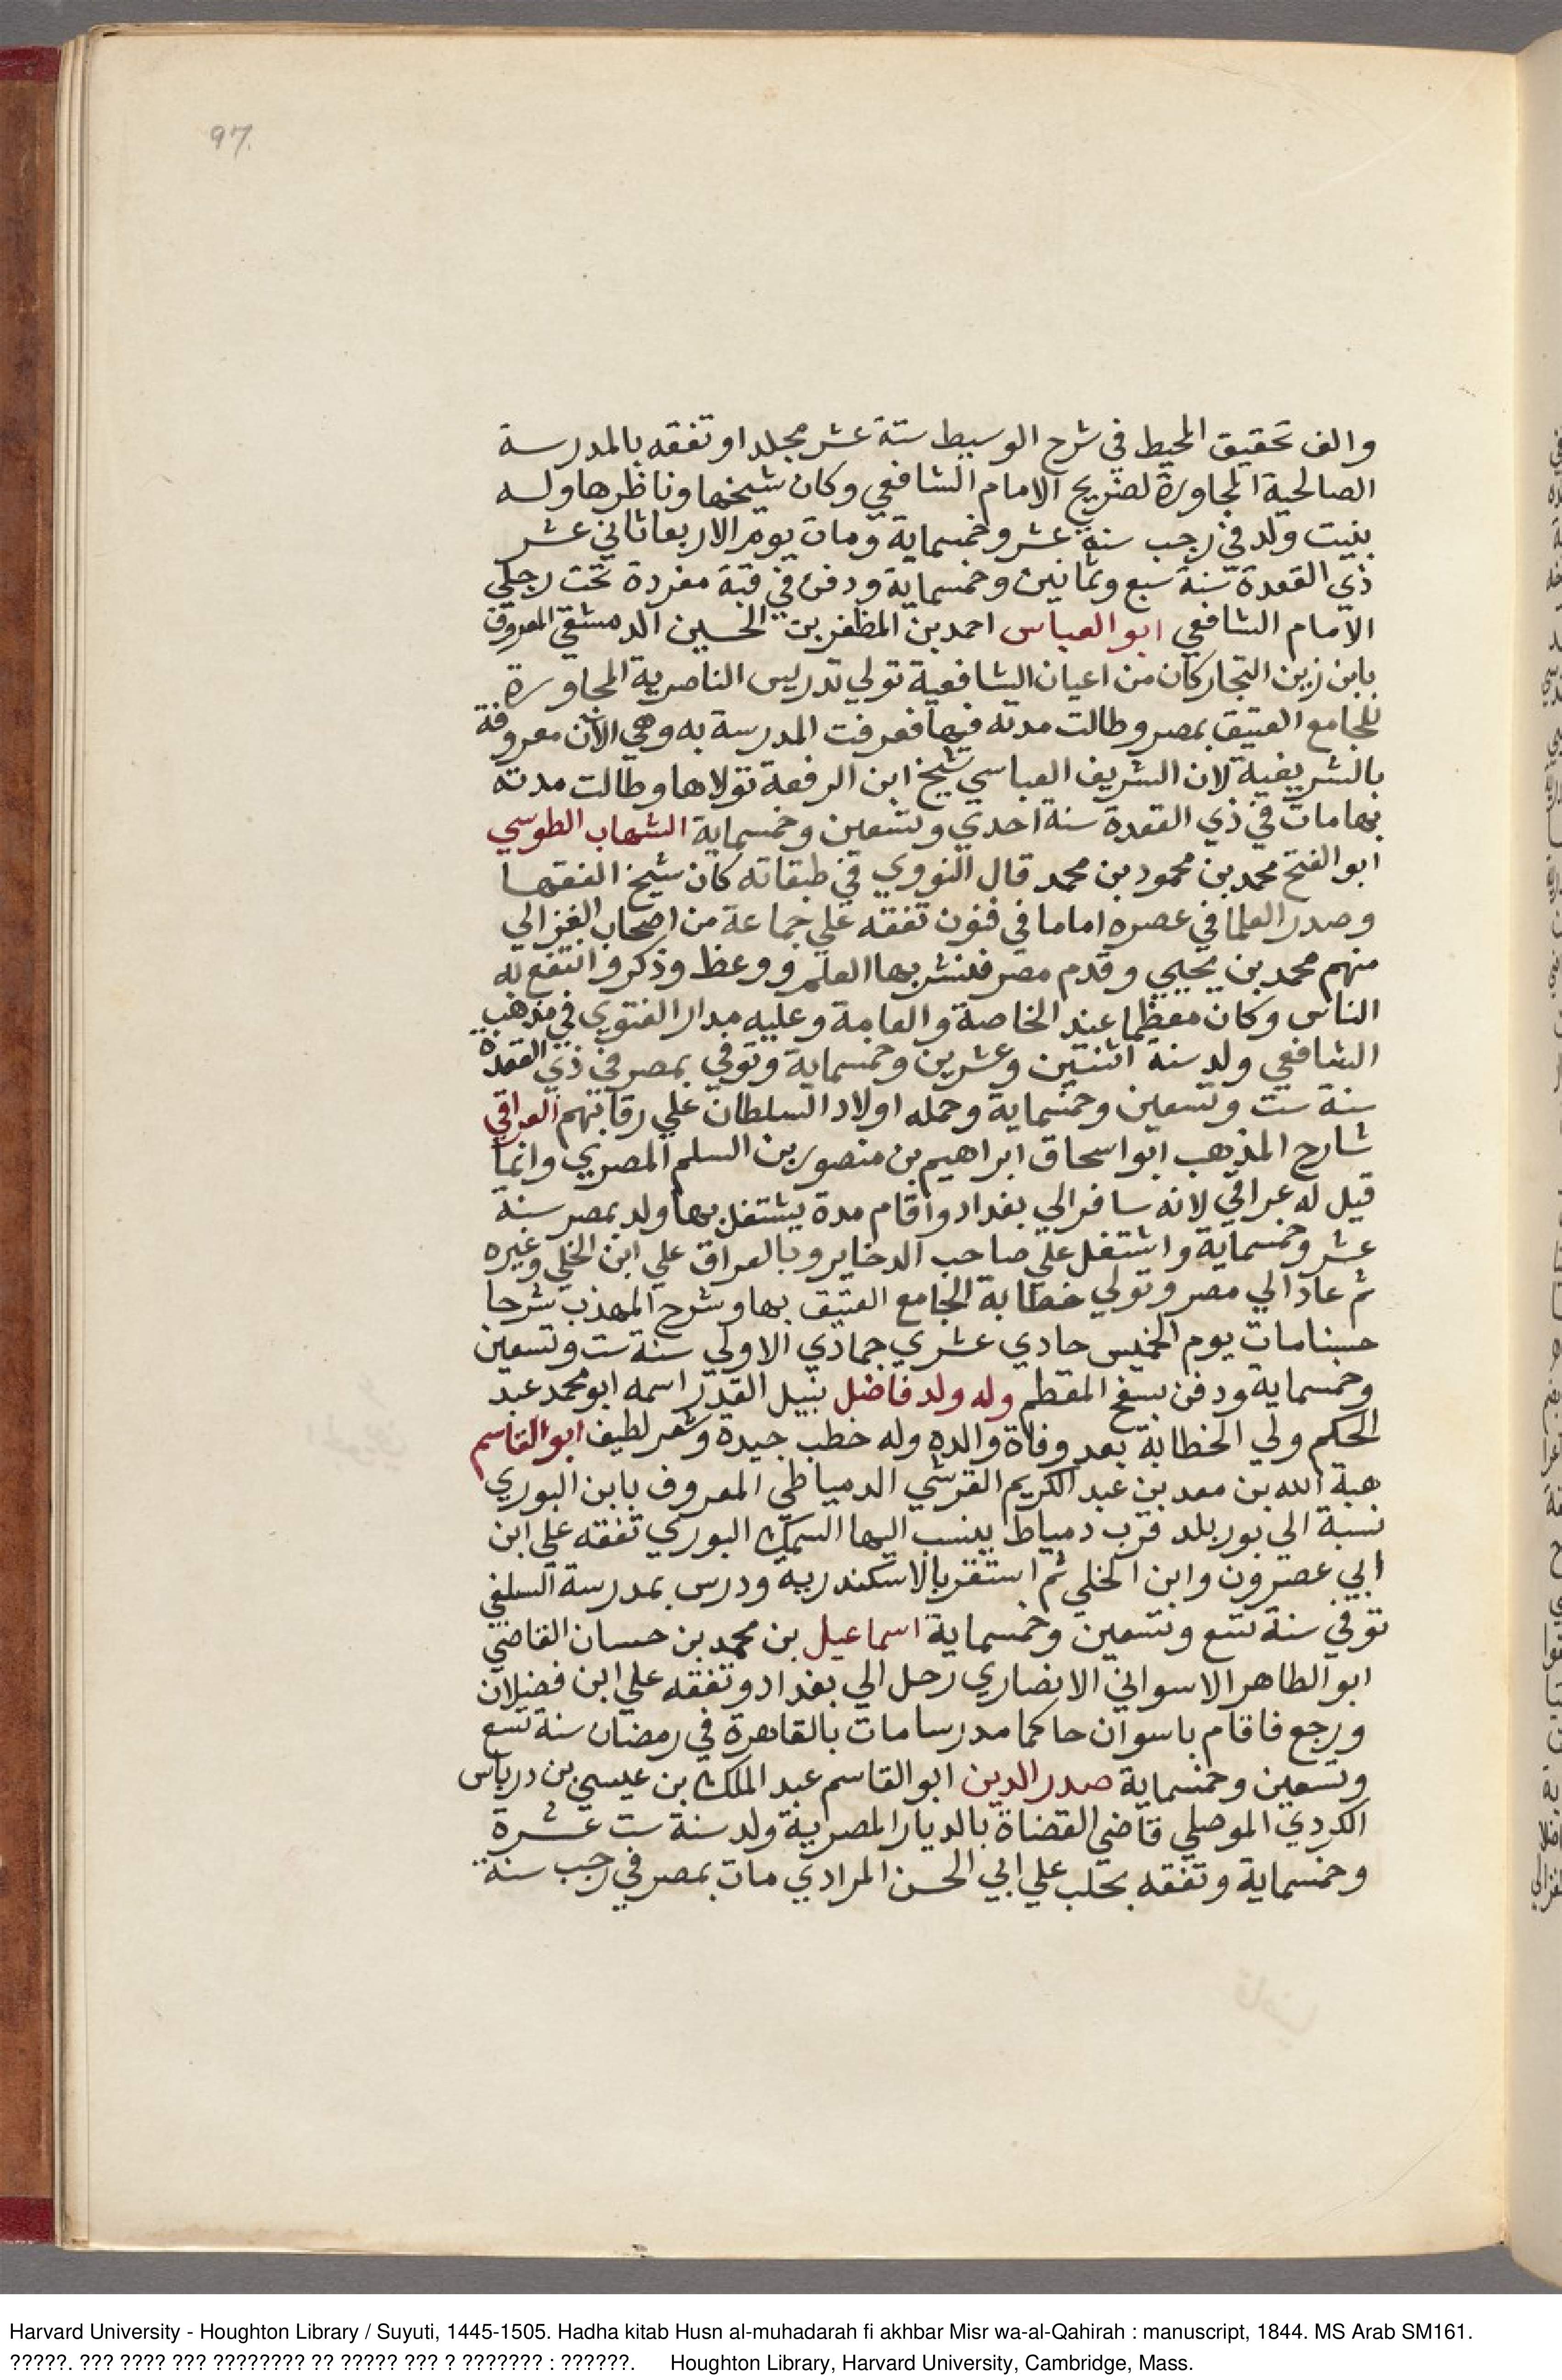 97.
والف تحقيق المحيط في شرح الوسيط ستة عشر مجلدا وتفقه بالمدرسة
الصالحية المجاورة لضريح الامام الشافعي وكان شيخها وناظرها وله
بنيت ولد في رجب سنة عشر وخمسماية ومات يوم الاربعا ثاني عشر
ذي القعدة سنة سبع وثمانين وخمسماية ودفن في قبة مفردة تحت رجلي
الامام الشافعي ابو العباس احمد بن المظفر بن الحسين الدمشقي المعروف
بابن زين التجار كان من اعيان الشافعية تولي تدريس الناصرية المجاورة
للجامع العتيق بمصر وطالت مدته فيها فعرفت المدرسة به وهي الان معروفة
بالشريفية لان الشريف العباسي شيخ ابن الرفعة تولاها وطالت مدته
بها مات في ذي القعدة سنة احدي وتسعين وخمسماية الشهاب الطوسي
ابو الفتح محمد بن محمود بن محمد قال النووي في طبقاته كان شيخ الفقها
وصدر العلما في عصره اماما في فنون تفقه علي جماعة من اصحاب الغزالي
منهم محمد بن يحيي وقدم مصر فنشر بها العلم ووعظ وذكر وانتفع به
الناس وكان معظما عند الخاصة والعامة وعليه مدار الفتوي في مذهب
الشافعي ولد سنة اثنتين وعشرين وخمسماية وتوفي بمصر في ذي القعدة
سنة ست وتسعين وخمسماية وحمله اولاد السلطان علي رقابهم العراقي
شارح المذهب ابو اسحاق ابراهيم بن منصور بن السلم المصري وانما
قيل له عراقي لانه سافر الي بغداد واقام مدة يشتغل بها ولد بمصر سنة
عشر وخمسماية واشتغل علي صاحب الدخاير وبالعراق علي ابن الخلي وغيره
ثم عاد الي مصر وتولي خطابة الجامع العتيق بها وشرح المهذب شرحا
حسنا مات يوم الخميس حادي عشري جمادي الاولي سنة ست وتسعين
وخمسماية ودفن بسفح المقطم وله ولد فاضل نبيل القدر اسمه ابو محمد عبد
الحكم ولي الخطابة بعد وفاة والده وله خطب جيدة وشعر لطيف ابو القاسم
هبة الله بن معد بن عبد الكريم القرشي الدمياطي المعروف بابن البوري
نسبة الي بور بلد قرب دمياط ينسب اليها السمك البوري تفقه علي ابن
ابي عصرون وابن الخلي ثم استقر بالاسكندرية ودرس بمدرسة السلفي
توفي سنة تسع وتسعين وخمسماية اسماعيل بن محمد بن حسان القاضي
ابو الطاهر الاسواني الانصاري رحل الي بغداد وتفقه علي ابن فضلان
ورجع فاقام باسوان حاكما مدرسا مات بالقاهرة في رمضان سنة تسع
وتسعين وخمسماية صدر الدين ابو القاسم عبد الملك بن عيسي بن درباس
الكردي الموصلي قاضي القضاة بالديار المصرية ولد سنة ست عشرة
وخمسماية وتفقه بحلب علي ابي الحسن المرادي مات بمصر في رجب سنة
Harvard University - Houghton Library / Suyuti, 1445-1505. Hadha kitab Husn al-muhadarah fi akhbar Misr wa-al-Qahirah : manuscript, 1844. MS Arab SM161.
?????. ??? ???? ??? ???????? ?? ????? ??? ? ??????? : ??????. Houghton Library, Harvard University, Cambridge, Mass.